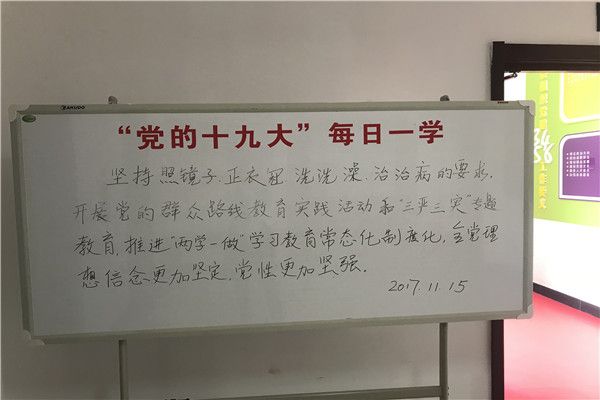 BAKUDO
“党的十九大”每日一学
坚持照镜子、正衣冠、洗洗澡、治治病的要求,
开展党的群众路线教育实践活动和“三严三实”专题
教育,推进“两学一做”学习教育常态化制度化,全党理
想信念更加坚定,党性更加坚强。
2017.11.15